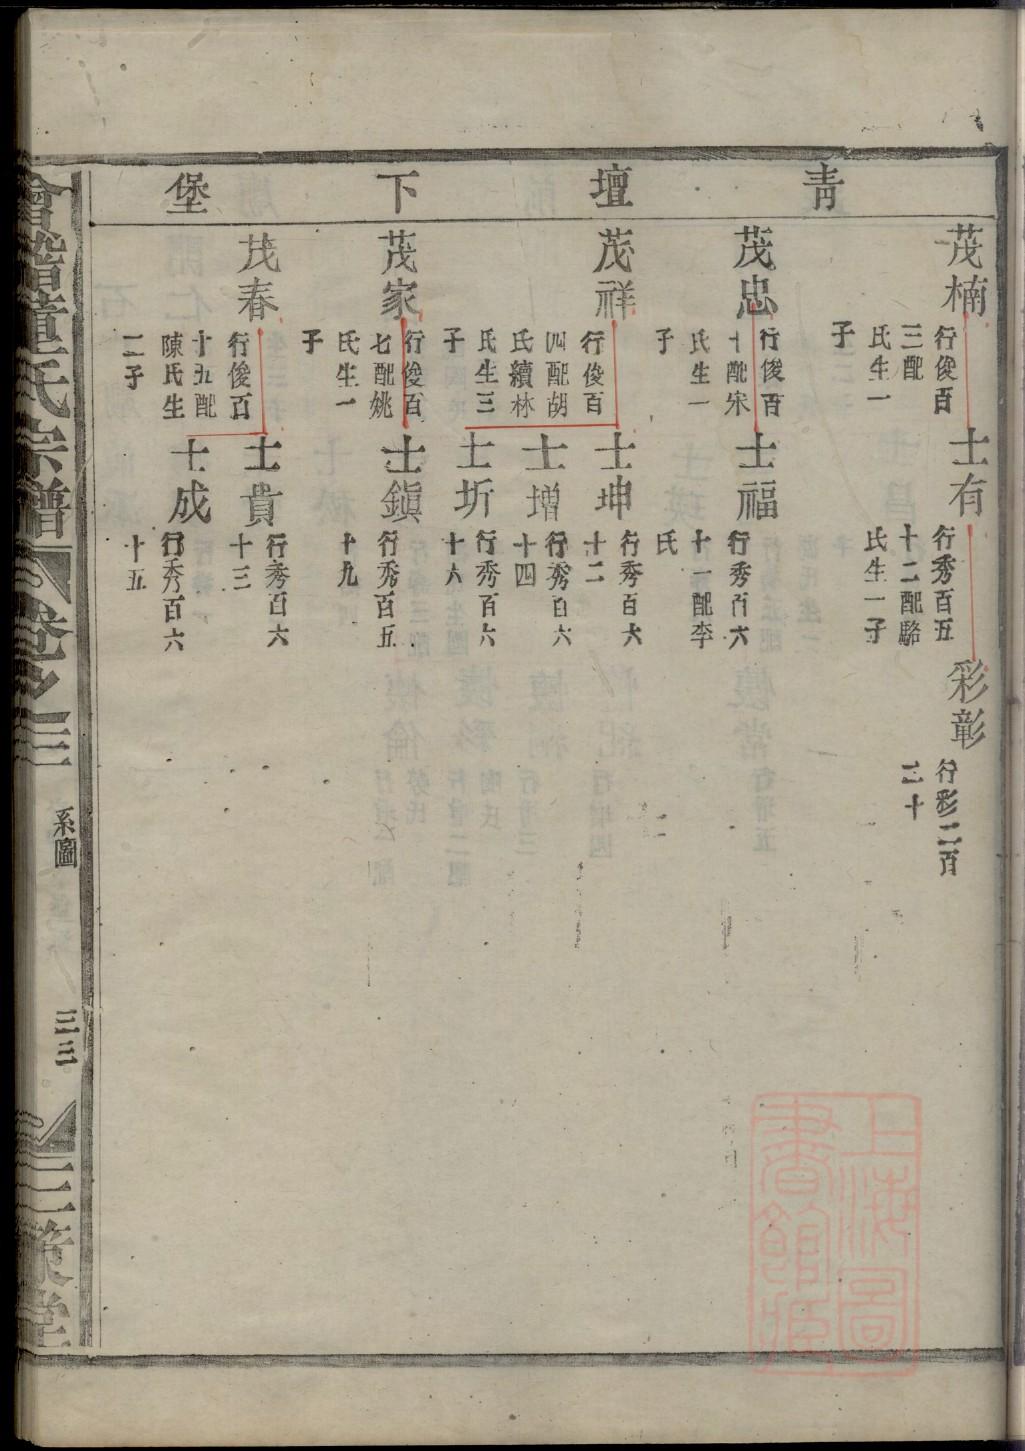 青壇下堡
茂楠
行俊百
三配
氏生一
子
士有
行秀百五
十二配駱
氏生一子
彩彰
行彩二百
二十
茂忠
行俊百
十配宋
氏生一
子
士福
行秀百六
十一配李
氏
茂祥
行俊百
四配胡
氏續林
氏生三
子
士坤
行秀百六
十二
士增
行秀百六
十四
士圻
行秀百六
十六
茂家
行俊百
七配姚
氏生一
子
士鎮
行秀百五
十九
茂春
行俊百
十五配
陳氏生
二子
士貴
行秀百六
十三
士成
行秀百六
十五
會稽章氏宗譜
卷之三
系圖
三三
三策堂
上海圖
書館藏